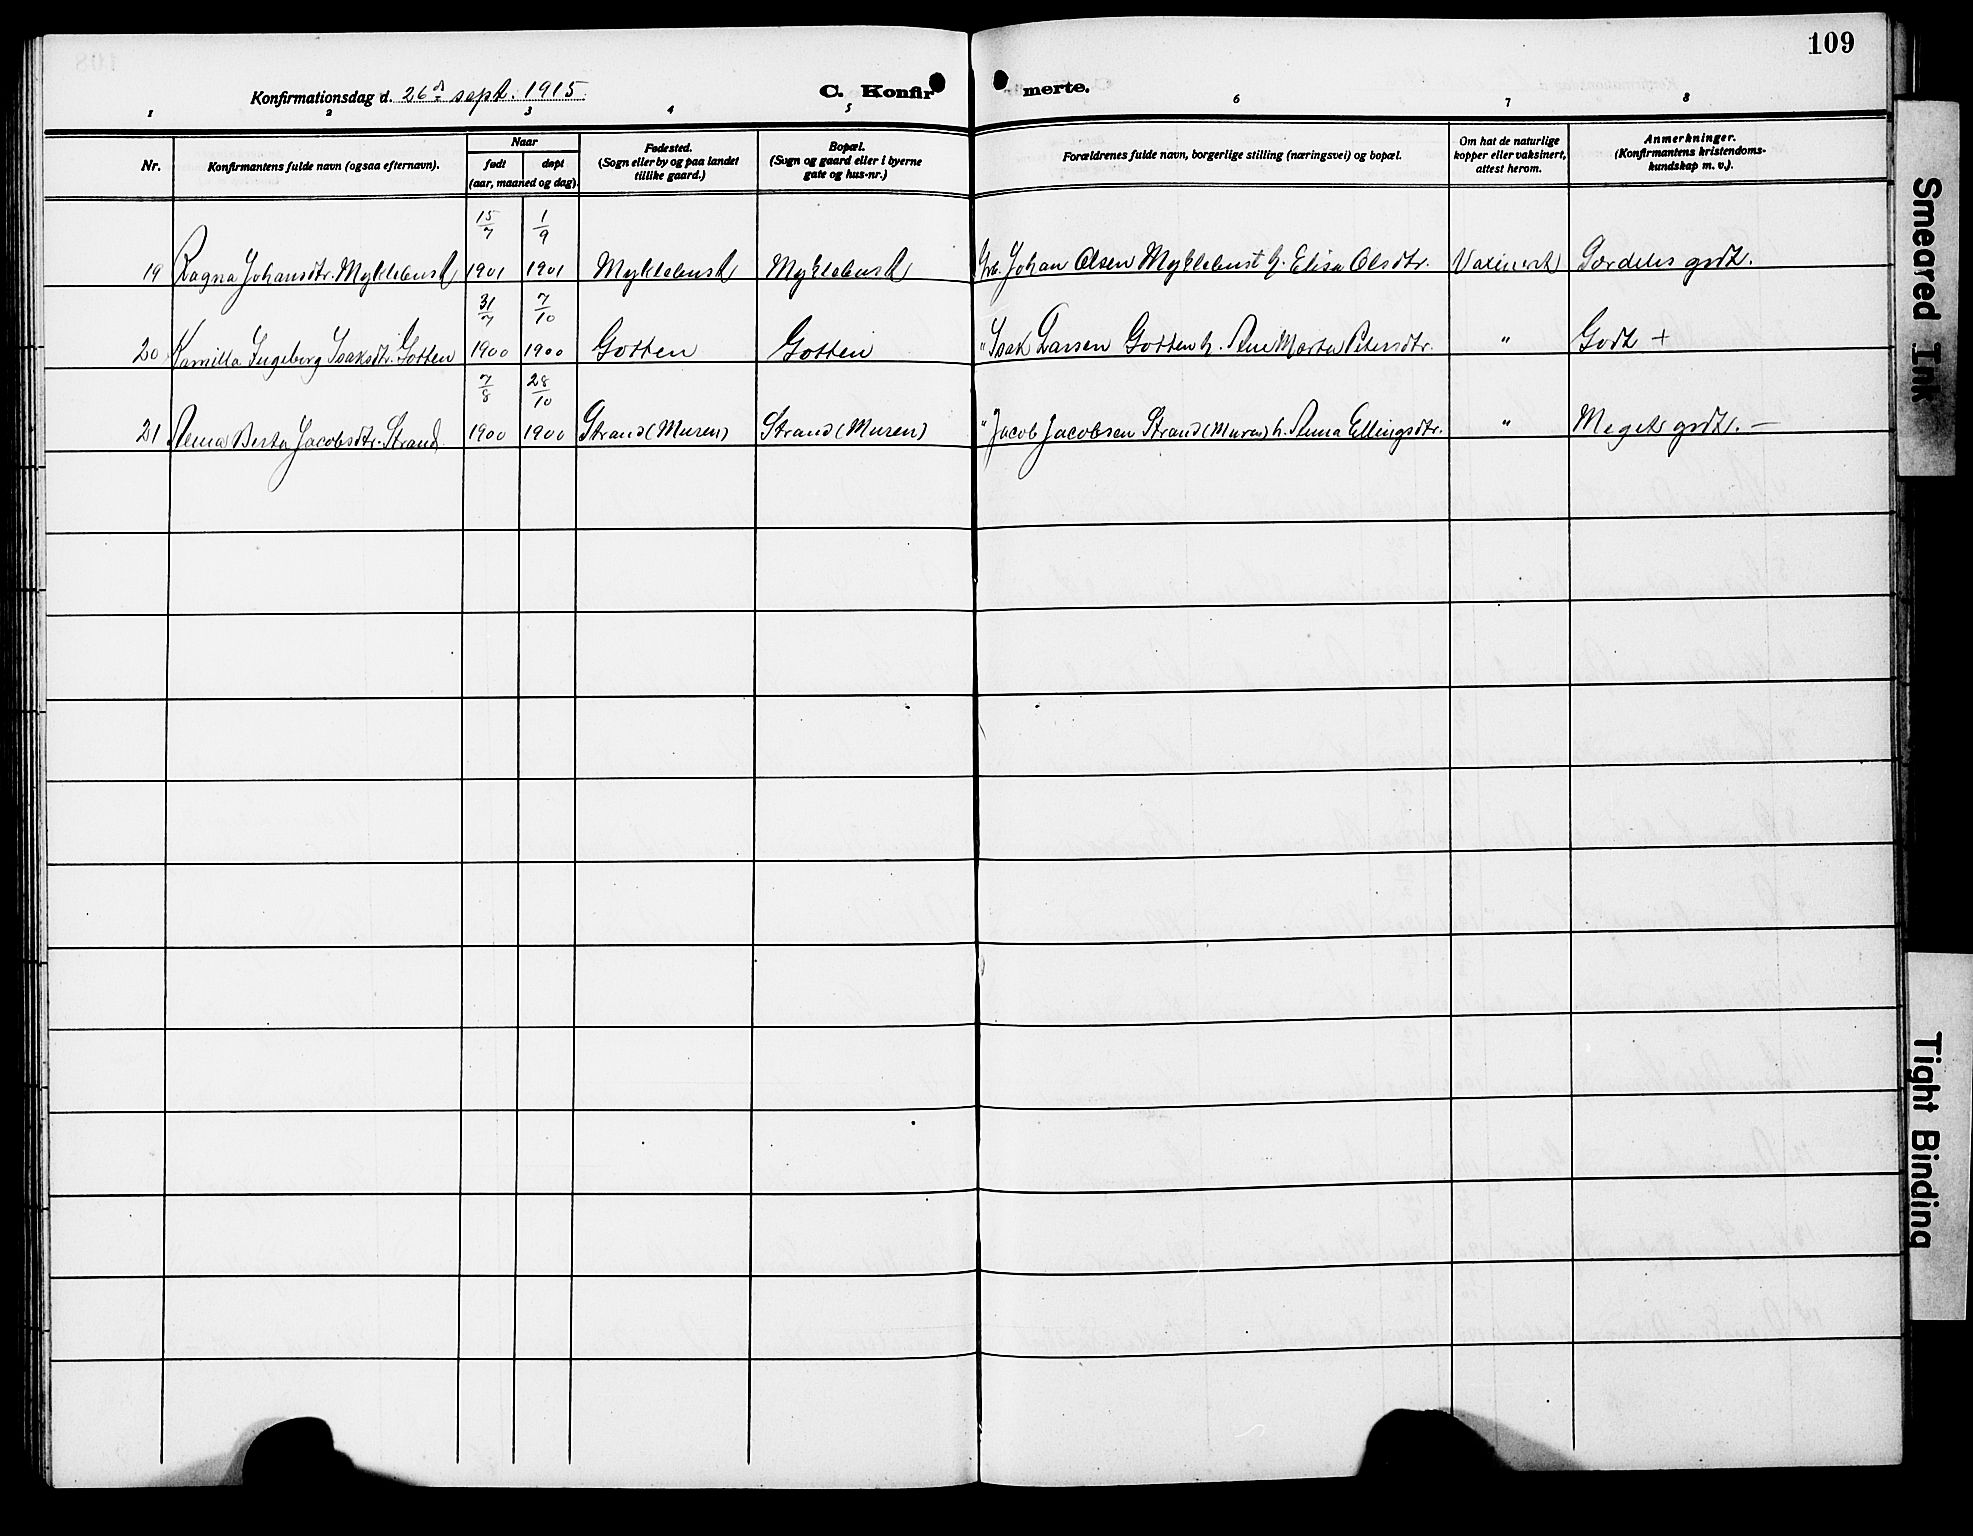 109
Konfirmationsdag d. 26d. sept. 1915. C. Konfirmerte.
1 2 3 4 5 6 7 8
Nr.
Konfirmantens fulde navn (ogsaa efternavn).
Naar
født døpt
(aar, maaned og dag)
Fødested.
(Sogn eller by og paa landet
tillike gaard.)
Bopæl.
(Sogn og gaard eller i byerne
gate og hus-nr.)
Forældrenes fulde navn, borgerlige stilling (næringsvei) og bopæl.
Om hat de naturlige
kopper eller vaksinert,
attest herom.
Anmerkninger.
(Konfirmantens kristendoms-
kundskap m. v.).
15/7 1/9
19 Ragna Johansdtr. Myklebust 1901 1901 Myklebust Myklebust Johan Olsen Myklebust h. Elisa Olsdtr. Vaxinert Særdeles godt.
31/7 7/10
20 Kamilla Ingeborg Isaksdtr. Gotten 1900 1900 Gotten Gotten " Isak Larsen Gotten h. Ane Marta Petersdtr. " Godt +
7/8 28/10
21 Anna Berta Jacobsdtr. Strand 1900 1900 Strand (Muren) Strand (Muren) " Jacob Jacobsen Strand (Muren) h. Anna Ellingsdtr. " Meget godt. –
Smeared Ink
Tight Binding